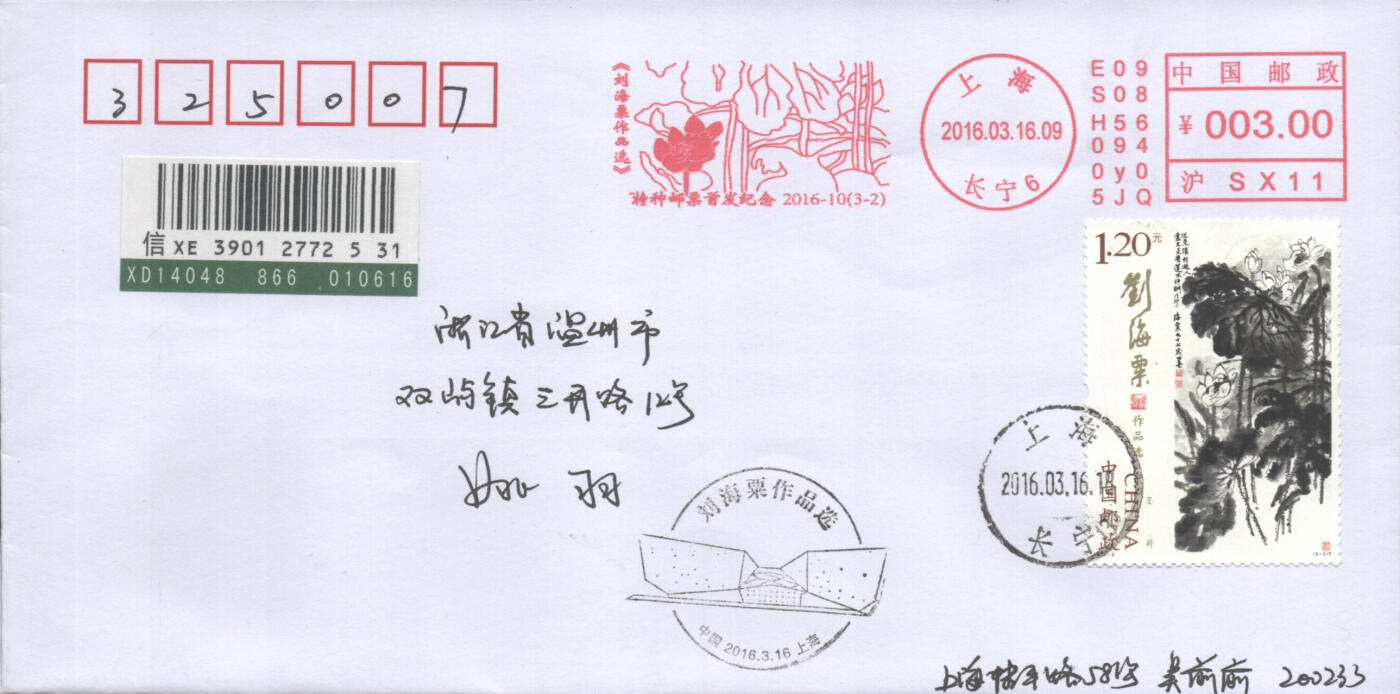 325007
《刘海粟作品选》
特种邮票首发纪念 2016-10(3-2)
上海
2016.03.16.09
长宁6
E09
S08
H56
094
0y0
5JQ
中国邮政
¥ 003.00
沪 SX11
信 XE 3901 2772 5 31
XD14048 866 010616
浙江省温州市
双屿镇三月路12号
姚羽
1.20元
劉海粟
作品选
墨荷
中国邮政
CHINA
(3-2)T
上海
2016.03.16.1
长宁
刘海粟作品选
中国 2016.3.16 上海
上海桂平路58号 吴前俞 200233